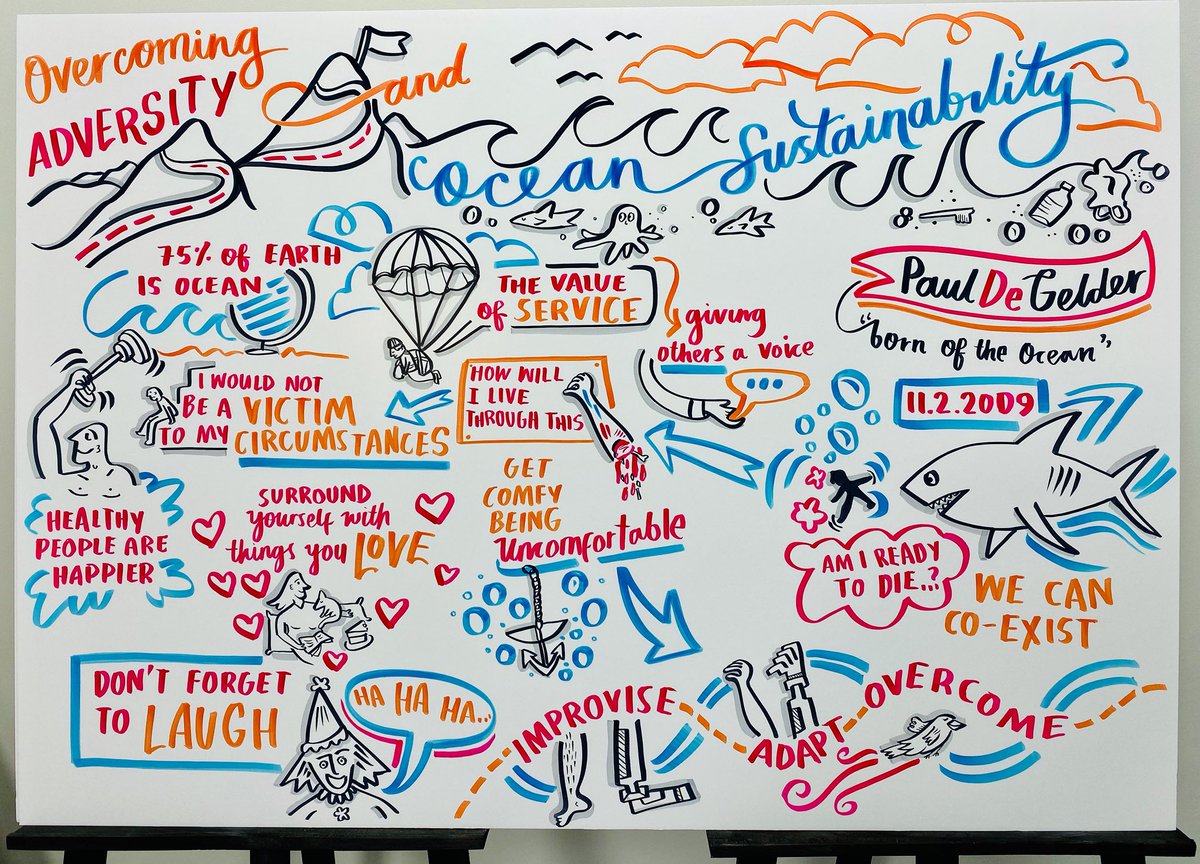 Overcoming
ADVERSITY
and
Ocean Sustainability
75% of EARTH
IS OCEAN
THE VALUE
of SERVICE
giving
others a voice
Paul De Gelder
"born of the Ocean"
11.2.2009
I WOULD NOT
BE A VICTIM
TO MY CIRCUMSTANCES
HOW WILL
I LIVE
THROUGH THIS
GET
COMFY
BEING
Uncomfortable
HEALTHY
PEOPLE ARE
HAPPIER
SURROUND
yourself with
things you LOVE
AM I READY
TO DIE..?
WE CAN
CO-EXIST
DON'T FORGET
TO LAUGH
HA HA HA..
IMPROVISE
ADAPT
OVERCOME